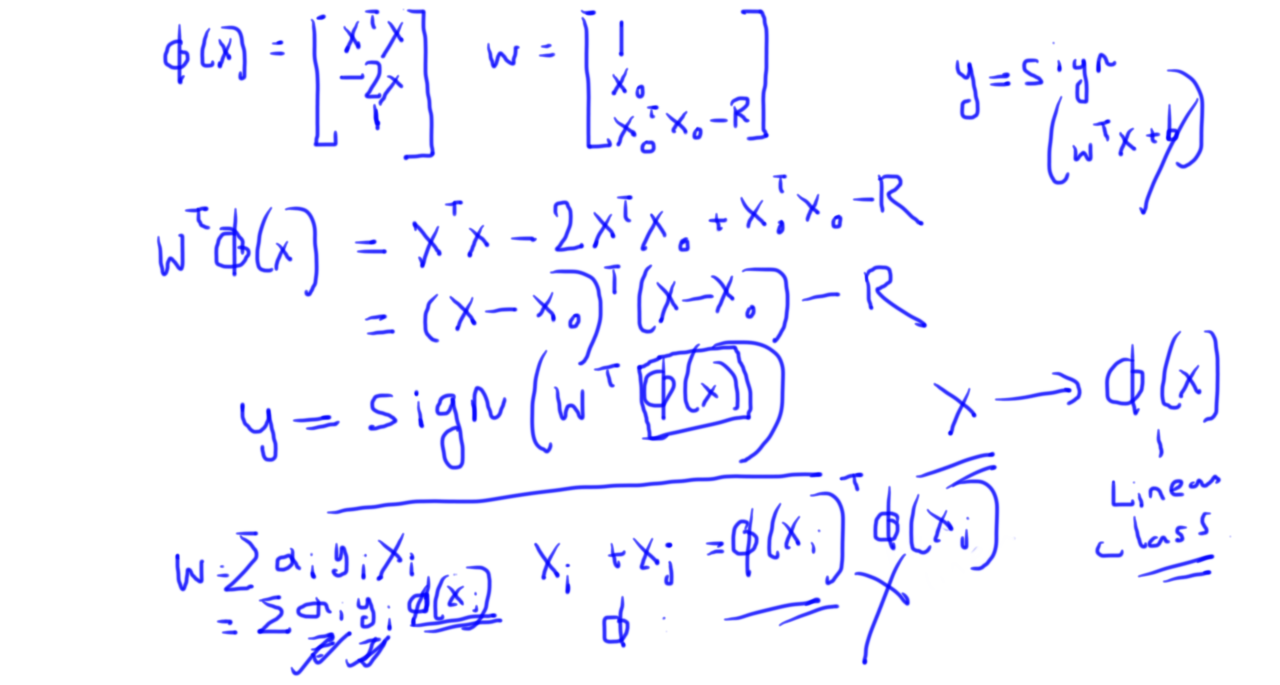 ϕ(x) = [xᵀx
-2x
1] w = [1
x₀
x₀ᵀx₀ - R]
y = sign
(wᵀx + b)
wᵀϕ(x) = xᵀx - 2xᵀx₀ + x₀ᵀx₀ - R
= (x - x₀)ᵀ(x - x₀) - R
y = sign(wᵀϕ(x))
x → ϕ(x)
Linear
class
w = Σαᵢyᵢxᵢ
= Σαᵢyᵢϕ(xᵢ)
xᵢ + xⱼ = ϕ(xᵢ)ᵀϕ(xⱼ)
ϕ